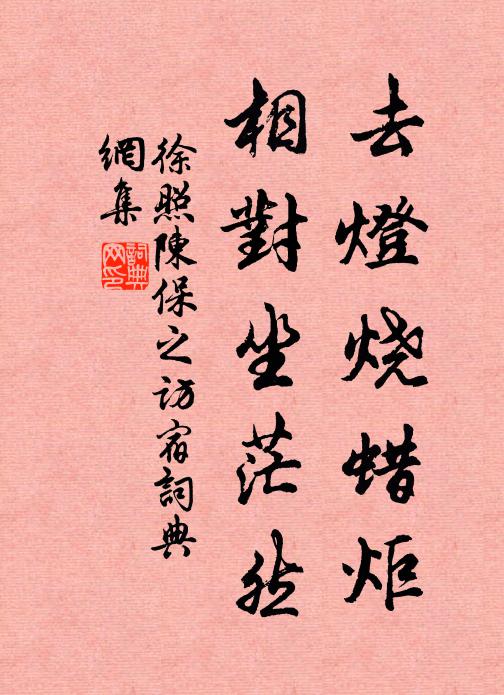 去燈烧蜡炬
相對坐茫然
徐照陳保之訪宿詞典
網集
詞典網印